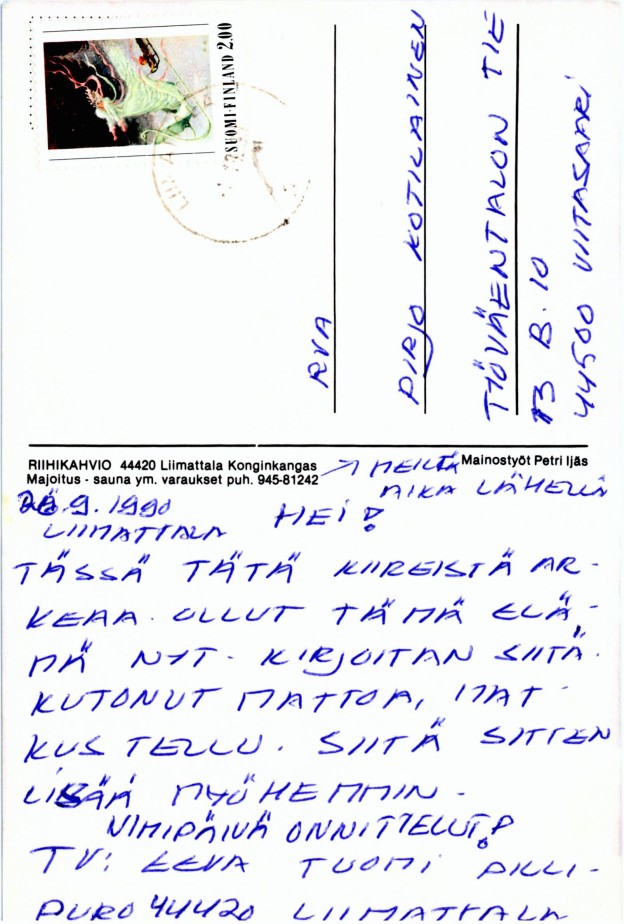 SUOMI-FINLAND 2,00
RVA
PIRJO KOTILAINEN
TYÖVÄENTALON TIE
13 B. 10
44500 VIITASAARI
RIIHIKAHVIO 44420 Liimattala Konginkangas
Majoitus - sauna ym. varaukset puh. 945-81242
Mainostyöt Petri Ijäs
→ MEILTÄ
AIKA LÄHELLÄ
9.1990
LIIMATTALA
HEI!
TÄSSÄ TÄTÄ KIIREISTÄ AR-
KEAA. OLLUT TÄMÄ ELÄ-
MÄ NYT. KIRJOITAN SIITÄ.
KUTONUT MATTOA, MAT-
KUSTELLU. SIITÄ SITTEN
LISÄÄ MYÖHEMMIN -
NIMIPÄIVÄ ONNITTELUT!
TV: EEVA TUOMI PILLI-
PURO 44420 LIIMATTALA